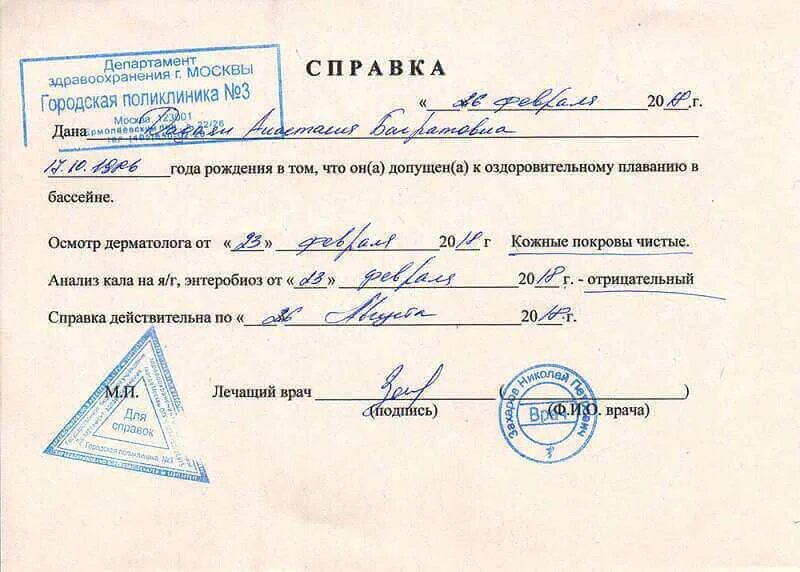 Департамент
здравоохранения г. МОСКВЫ
Городская поликлиника №3
Москва, 123001
Ермолаевский пер., д. 22/26
СПРАВКА
« 26 февраля 2018.г.
Дана Анастасия Багратовна
17.10.1986 года рождения в том, что он(а) допущен(а) к оздоровительному плаванию в
бассейне.
Осмотр дерматолога от «23» февраля 2018 г Кожные покровы чистые.
Анализ кала на я/г, энтеробиоз от «23» февраля 2018 г. - отрицательный
Справка действительна по « 26 Августа 2018.г.
М.П. Лечащий врач ( )
(подпись) (Ф.И.О. врача)
Для
справок
Городская поликлиника №3
Захаров Николай Петрович
Врач